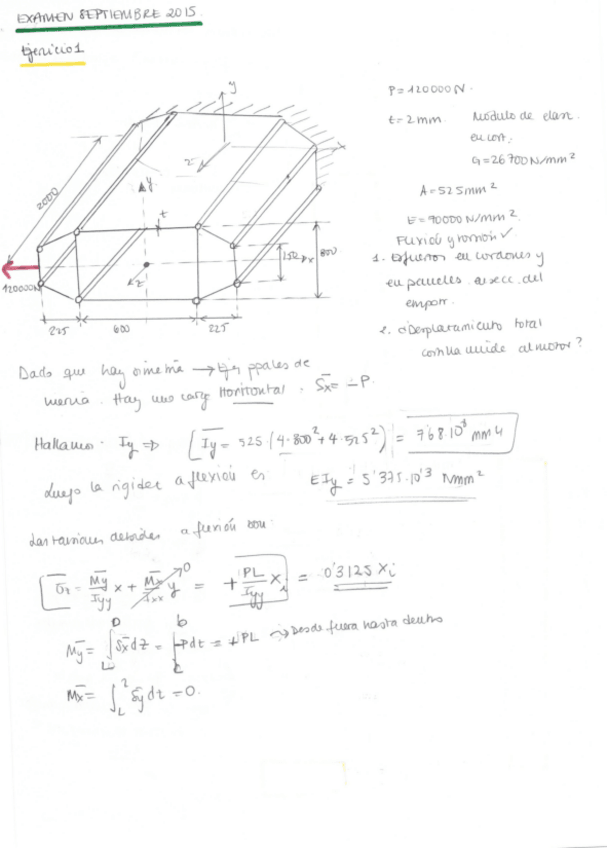 EXAMEN SEPTIEMBRE 2015
Ejercicio 1
P = 120000 N.
t = 2 mm. Modulo de elast.
en cort.
G = 26700 N/mm²
A = 525 mm²
E = 70000 N/mm²
Flexión y torsión ✓
1. Esfuerzos en cordones y
en paneles en secc. del
empotr.
2. ¿Desplazamiento total
costilla unida al motor?
y
x
z
2000
y
t
z
x
150
800
120000N
225 600 225
Dado que hay simetría → Ejes ppales de
inercia. Hay una carga Horizontal. Sx = -P.
Hallamos Iy ⇒ [Iy = 525·(4·300² + 4·525²)] = 768·10⁶ mm4
Luego la rigidez a flexión es EIy = 5'375·10¹³ Nmm²
Las tensiones debidas a flexión son:
σz = My/Iyy x + Mx/Ixx y = + PL/Iyy xi = 0'3125 xi
0
My = ∫ Sx dz = ∫ -Pdt = +PL → Desde fuera hasta dentro
Mx = ∫ Sy dt = 0.